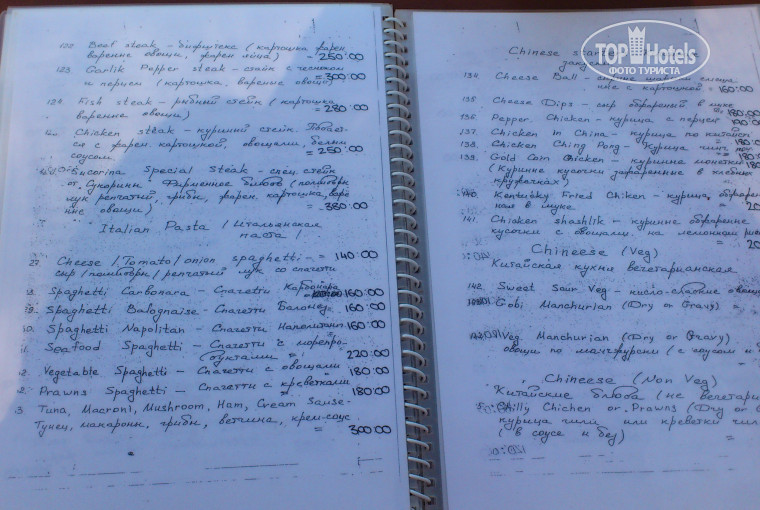 122. Beef steak - бифштекс (картошка фарен,
варенные овощи, фарен яйца) - 250:00
123. Garlik Pepper steak - стейк с чесноком
и перцем (картошка, варенне овощи) =300:00
Fish steak - рыбный стейк (картошка,
варенне овощи) = 280:00
Chicken steak - куринный стейк.
ся с фарен. картошкой, овощами, белым
соусом = 250:00
Sucorina Special Steak - спец. стейк
от Сукорины. Фирменное блюдо (помидоры
лук репчатий, грибы, фарен, картошка, варе
нне овощи) = 380:00
Italian Pasta / Итальянская
паста /
27 Cheese / Tomato / onion spaghetti - = 140:00
сыр / помидоры / репчатий лук со спагетти
Spaghetti Carbonara - Спагетти Карбонара 160:00
Spaghetti Bolognaise - Спагетти Балонез 160:00
Spaghetti Napolitan - Спагетти Наполитан 160:00
Seafood Spaghetti - Спагетти с морепро-
дуктами = 220:00
Vegetable Spaghetti - Спагетти с овощами 180:00
Prawns Spaghetti - Спагетти с креветками 180:00
3 Tuna, Macroni, Mushroom, Ham, Cream Sause-
Тунец, макароны, грибы, ветчина, крем-соус
= 300:00
TOP Hotels
ФОТО ТУРИСТА
Chinese
134. Cheese Ball -
с картошкой = 160:00
135 Cheese Dips - сыр обфареный в муке
= 180:00
136 Pepper Chicken - курица с перцем
137. Chicken In China - курица по китайск
= 180:0
138. Chicken Ching Pong - Курица чинг пон
139. Gold Coin Chicken - куринне монетки
(Куринне кусочки зафаренные в хлебных
кружочках)
140. Kentusky Fried Chiken - курица, обфарен
ная в муке
141. Chicken shashlik - куринне обфаренне
кусочки с овощами, на лемонном рисе
Chineese (Veg)
Китайская кухня вегетарианская
142. Sweet Sour Veg - кисло-сладкие овощи
Gobi Manchurian (Dry or Gravy) =
Veg. Manchurian (Dry or Gravy)
овощи по манчжурски (с соусом и
Chineese (Non Veg)
Китайские блюда (не вегетариа
Chilly Chichen or Prawns (Dry or G
курица чили или креветки чил
(в соусе и без) =